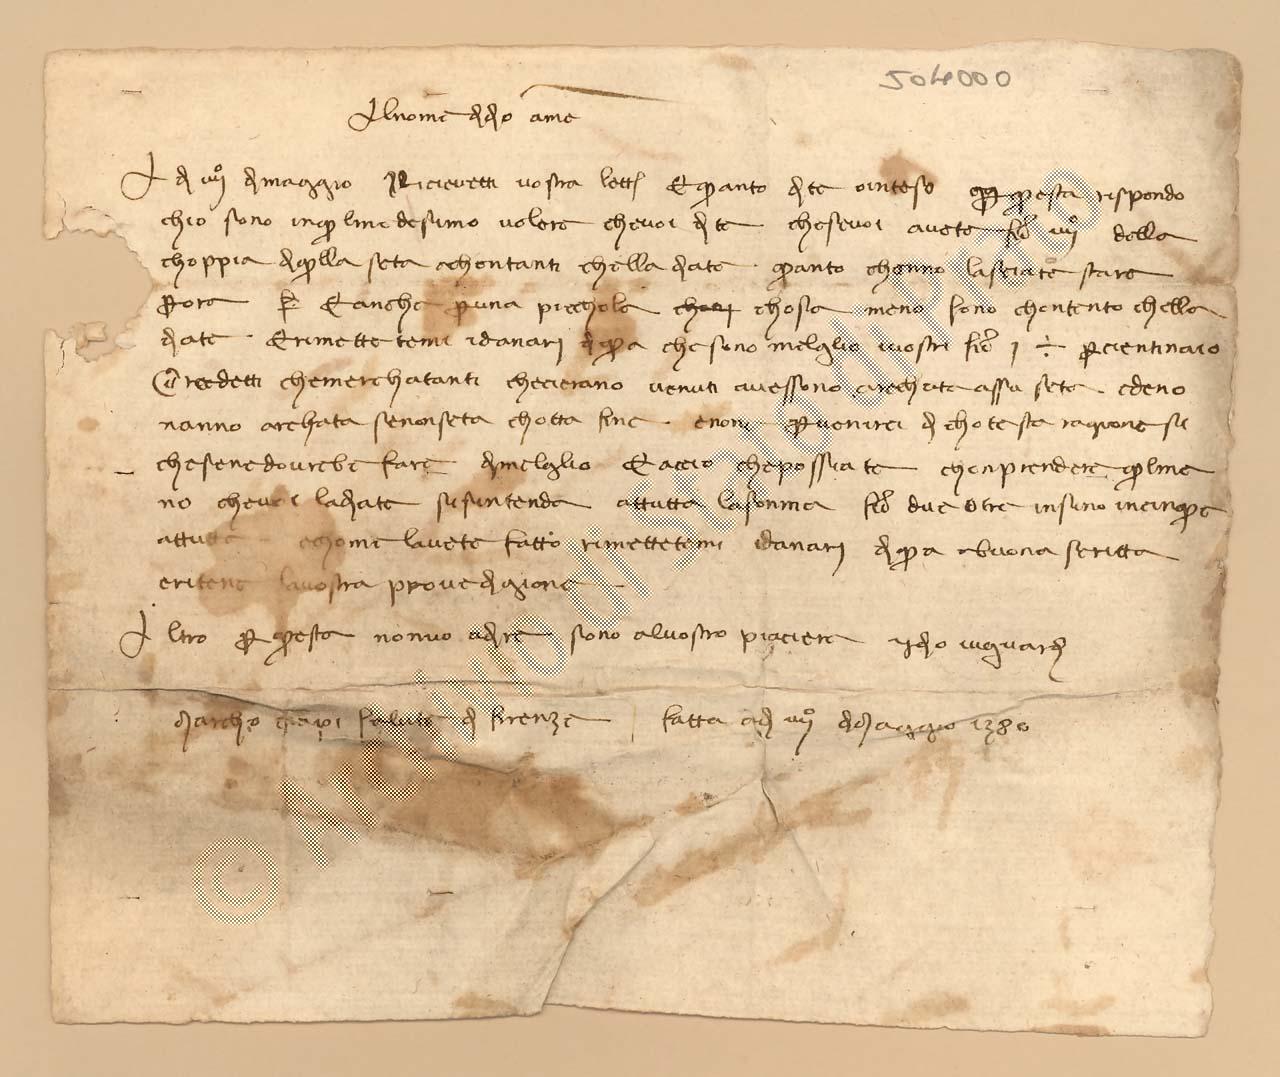 504000
Al nome di dio ame
A dì iiii° di maggio Ricievetti vostra lett E quanto dite ointeso qq questa rispondo
chio sono in quelmedesimo volere chevoi dite chesevoi avete fior iiii° della
choppia diquella seta achontanti chella diate quanto chenno lasciate stare
per ora E anche per una picchola chosa meno sono chontento chella
diate Erimettetemi idanari diqua chesono melglio ivostri fior 1 ÷ percientinaio
Credetti chemerchatanti checierano venuti avessono arechata assa seta edeno
nanno arechata senonseta chotta fine enom per venirci di chotesta ragione si
chesenedovrebe fare dimelglio E accio chepossiate chonprendere quelme
no chevoi ladiate sisintenda attutta lasomma fior due otre insino incinque
attutta echome lavete fatto rimettetemi idanari diqua abuona scritta
eritene lavostra provedigione
Altro per questa nonvo dire sono alvostro piaciere idio viguardi
Marcho salute di firenze fatta adi iiii° dimaggio 1386
© Archivio di Stato di Prato